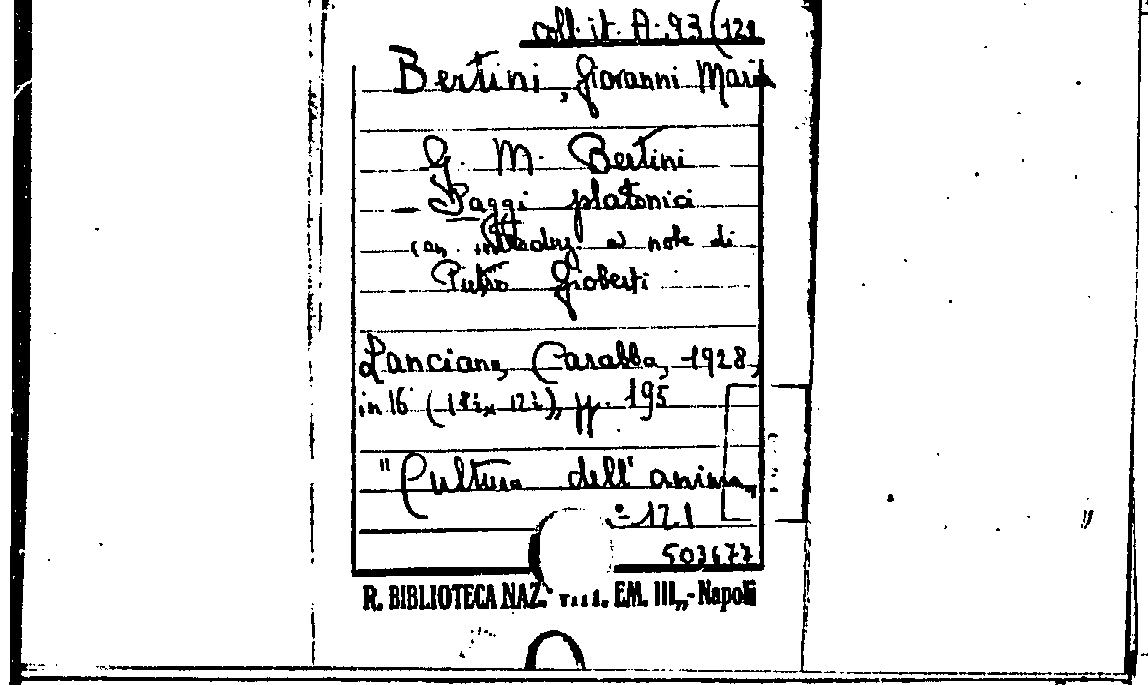 coll. it. A. 93 (121
Bertini, Giovanni Maria
G. M. Bertini
- Saggi platonici
con introduz. e note di
Pietro Gioberti
Lanciano, Carabba, 1928,
in 16 ( ), pp. 195
"Cultura dell'anima„
121
503677
R. BIBLIOTECA NAZ. EM. III„-Napoli